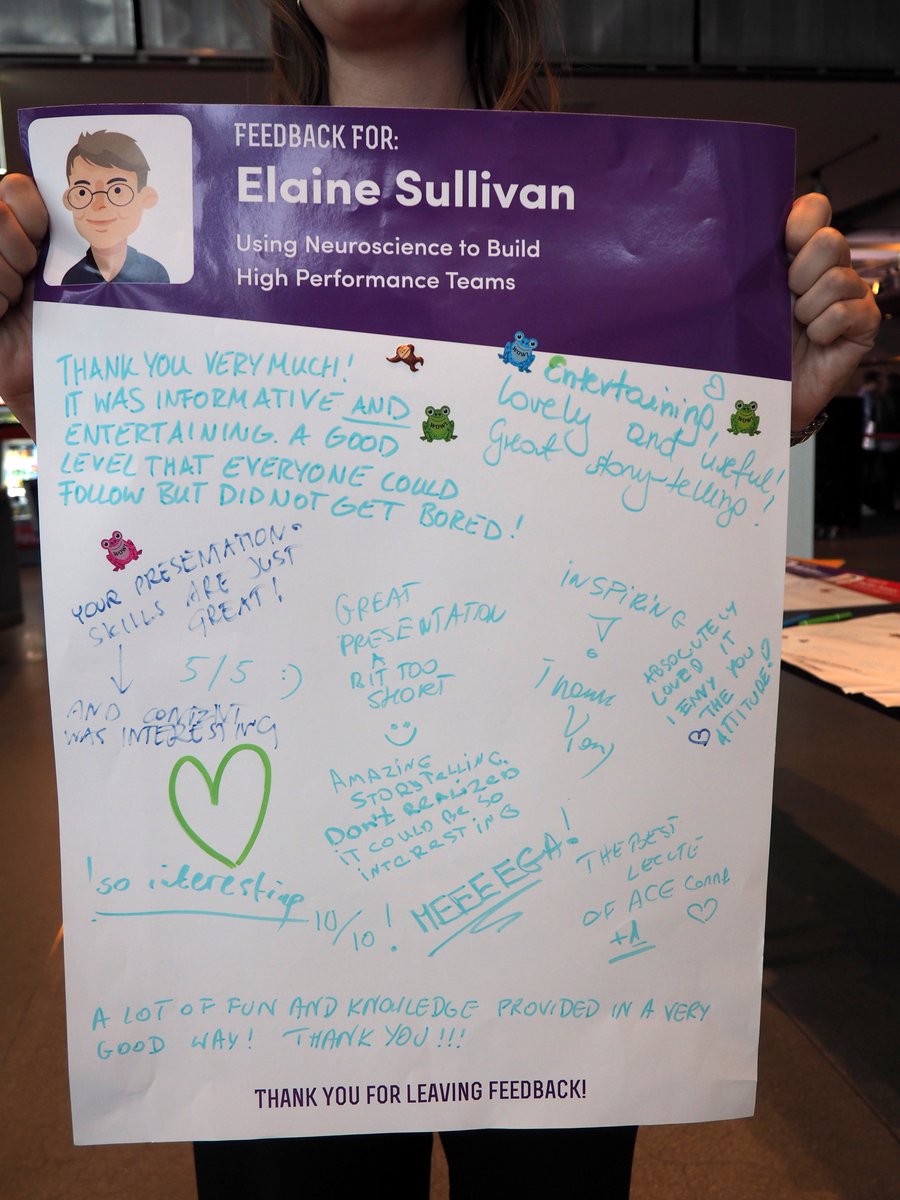 FEEDBACK FOR:
Elaine Sullivan
Using Neuroscience to Build
High Performance Teams
THANK YOU VERY MUCH!
IT WAS INFORMATIVE AND
ENTERTAINING. A GOOD
LEVEL THAT EVERYONE COULD
FOLLOW BUT DID NOT GET BORED!
WOW!
WOW!
WOW!
Entertaining,
lovely and useful!
Great story-telling!
WOW
YOUR PRESENTATION
SKILLS ARE JUST
GREAT!
5/5 :)
AND CONTENT
WAS INTERESTING
GREAT
PRESENTATION
A
BIT TOO
SHORT
INSPIRING
ABSOLUTELY
LOVED IT
I ENVY YOU
THE
ATTITUDE!
AMAZING
STORYTELLING.
DON'T REALIZED
IT COULD BE SO
INTERESTING
!so interesting
10/10!
MEEEEGA!
THE BEST
OF ACE
+1
A LOT OF FUN AND KNOWLEDGE PROVIDED IN A VERY
GOOD WAY! THANK YOU!!!
THANK YOU FOR LEAVING FEEDBACK!